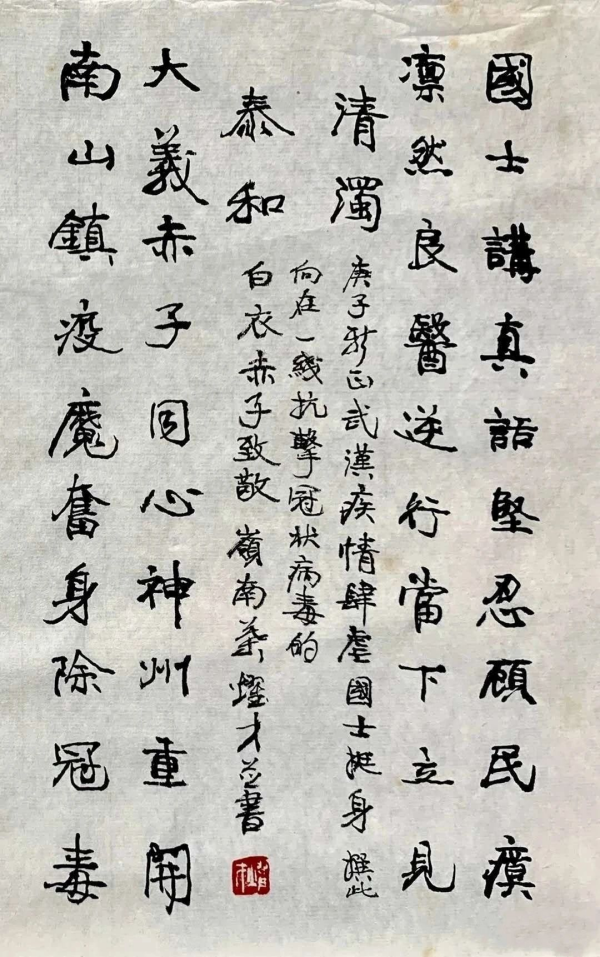 國士講真話堅忍顧民瘼
凜然良醫逆行當下立見
清濁
南山鎮疫魔奮身除冠毒
大義赤子同心神州重開
泰和
庚子新正武漢疾情肆虐國士挺身撰此
向在一綫抗擊冠狀病毒的
白衣赤子致敬嶺南葉燿才並書